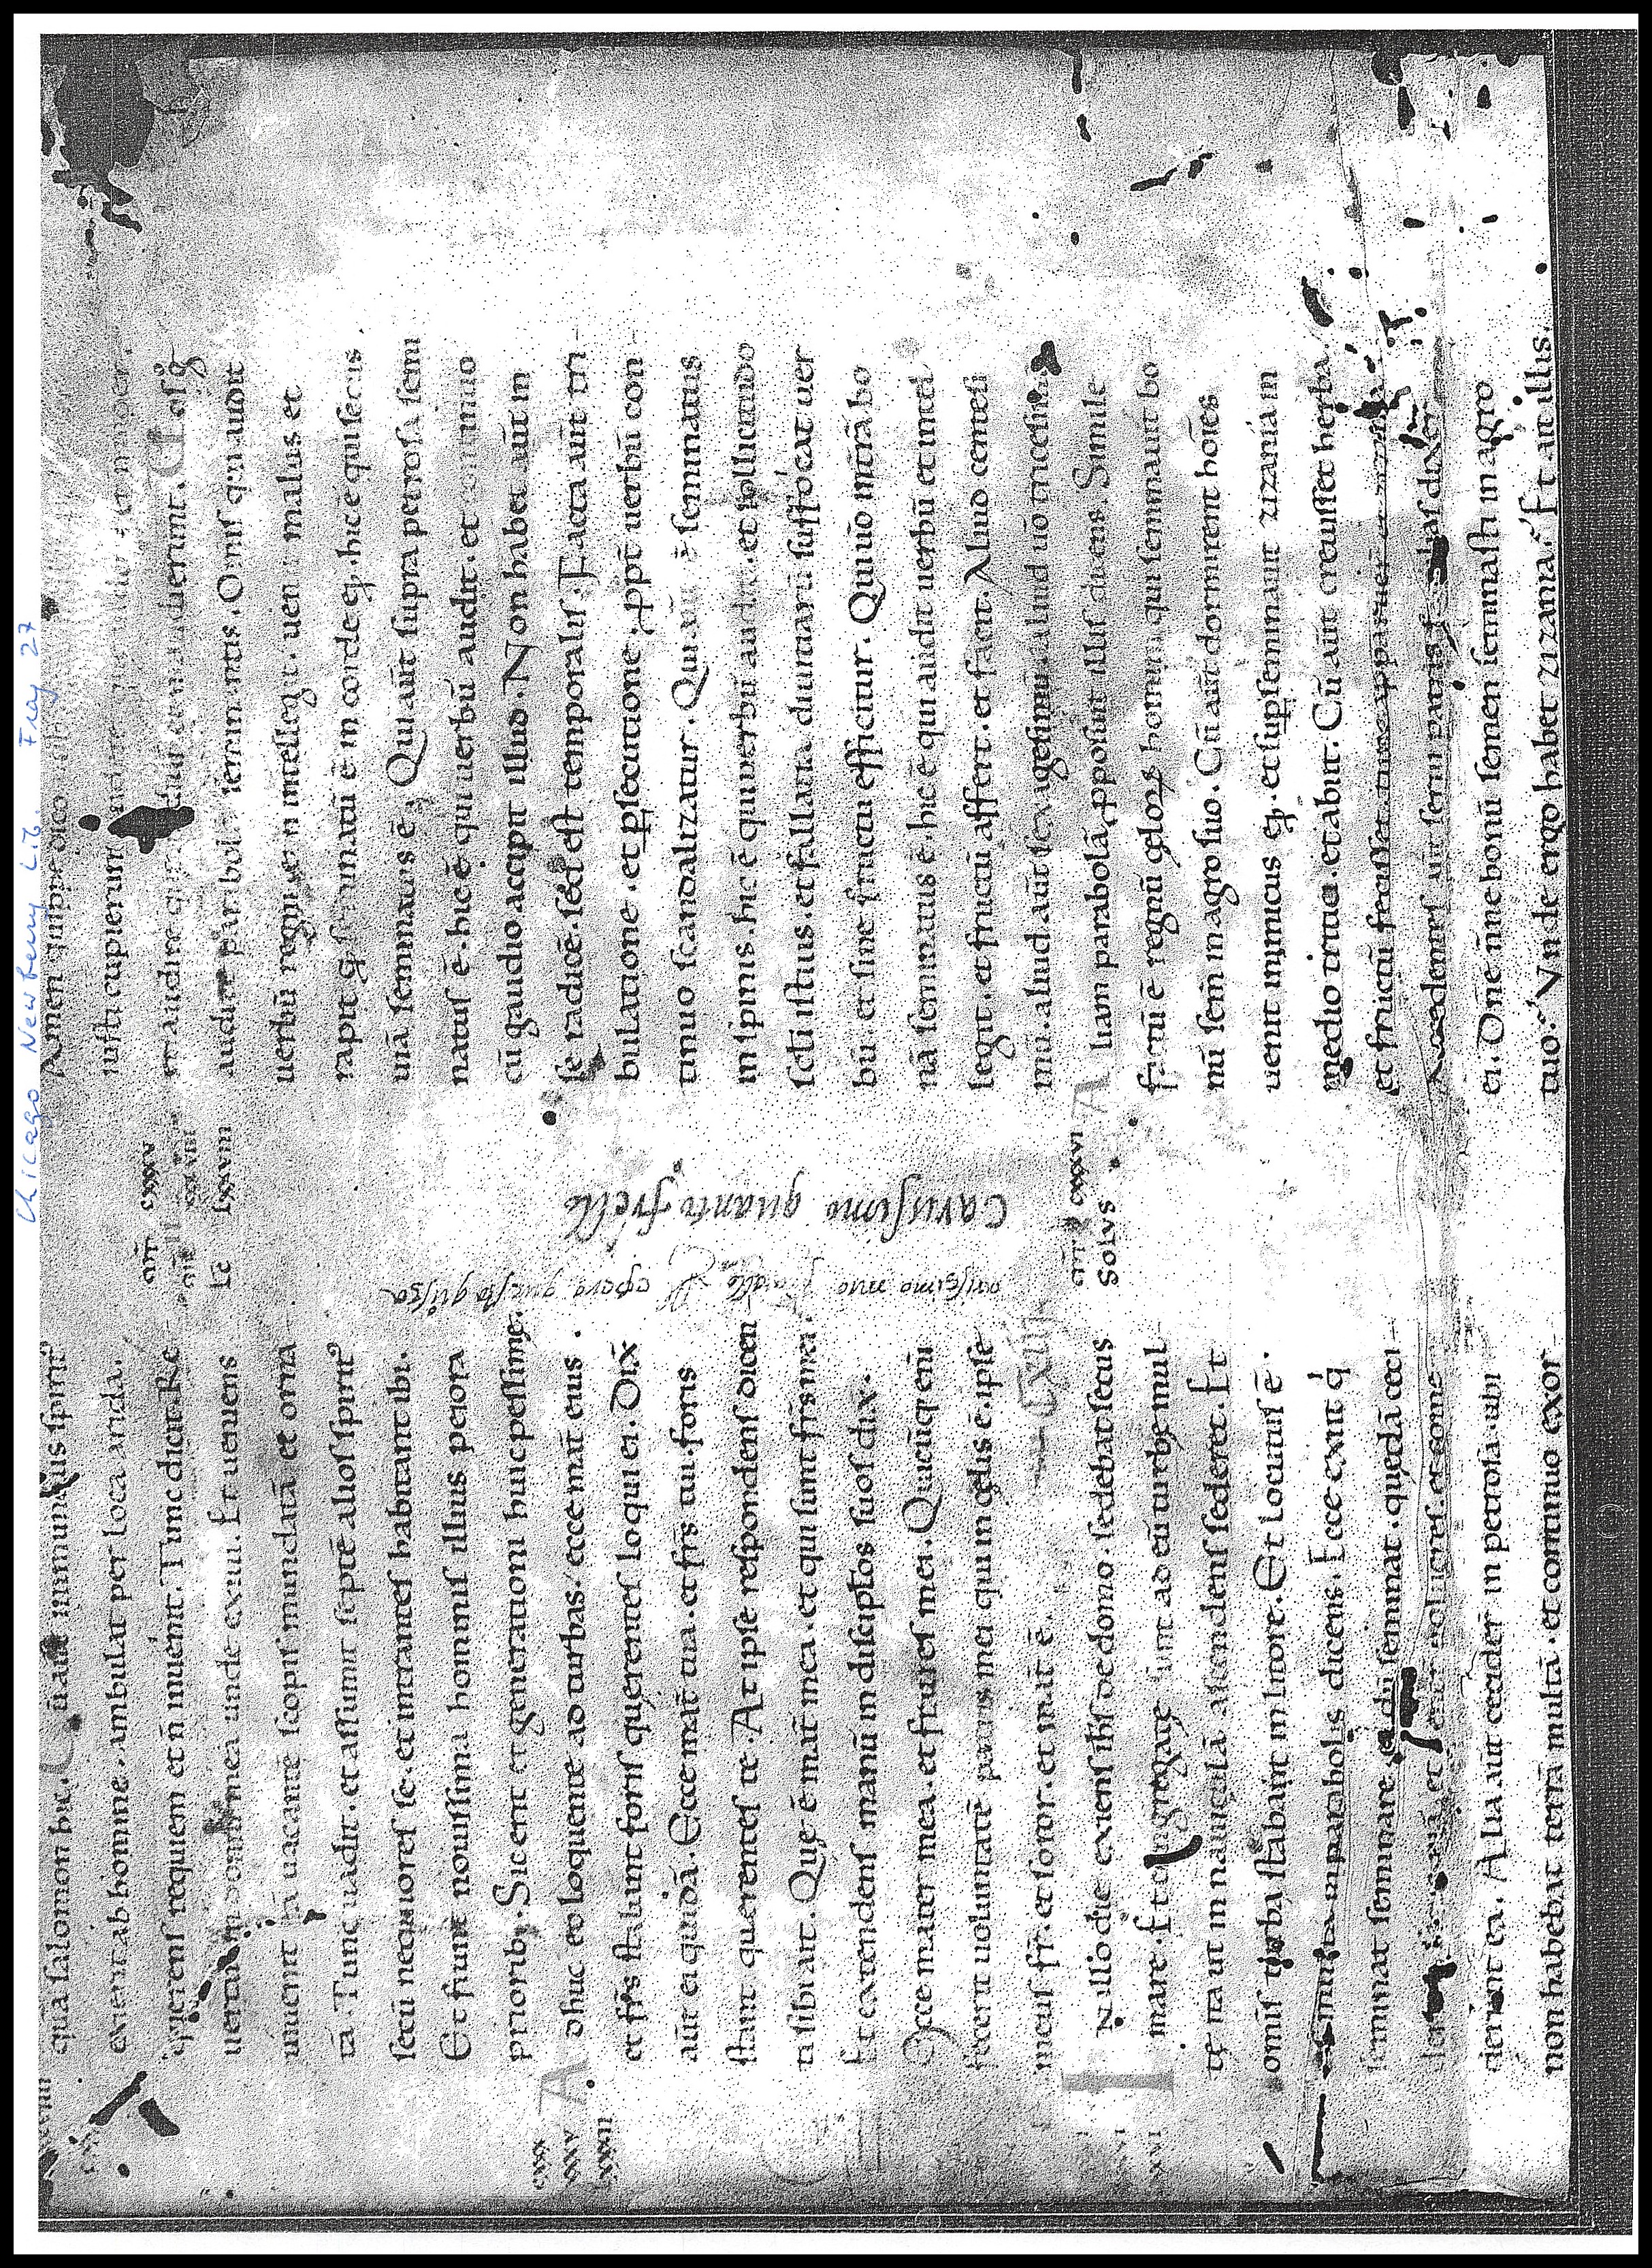 Chicago Newberry Lib. Frag 27
quā salomon hic. Cū aūt inmundus spirit᾽
exierit ab homine. ambulat per loca arida.
querens requiem et n̄ inuenit. Tunc dicit. Re
uertar in domum meā unde exiui. Et ueniens
inuenit eā uacantē scopis mundatā et orna
tā. Tunc uadit. et assumit septē alios spirit᾽
secū nequiores se. et intrantes habitant ibi.
Et fiunt nouissima hominis illius peiora
priorib;. Sic erit et generationi huic pessime.
Adhuc eo loquente ad turbas. ecce mat̄ eius.
et fr̄s stabant foris querentes loqui ei. Dix̄
aūt ei quidā. Ecce mat̄ tua. et fr̄s tui. foris
stant querentes te. At ipse respondens dicen
ti sibi ait. Que ē mat̄ mea. et qui sunt fr̄s mei.
Et extendens manū in discip̄los suos dix̄.
Ecce mater mea. et fratres mei. Quicūq; enī
fecerit uoluntatē patris mei qui in celis ē. ipse
meus fr̄. et soror. et mat̄ ē.
In illo die exiens ih̄s de domo. sedebat secus
mare. Et congregate sunt ad eū turbe mul
te ita ut in nauiculā ascendens sederet. Et
omīs turba stabant in litore. Et locutus ē
eis multa in parabolis dicens. Ecce exiit q̇
seminat seminare. et dū seminat. quedā ceci
derunt secus uiā et uenerunt uolucres. et come
derunt ea. Alia aūt cecider̄ in petrosa. ubi
non habebat terrā multā. et continuo exor
cxxx
xxxv
lxxxii
carissimo quanto fratello
Amen quippe dico
iusti cupierunt uidere
et audire que auditis et n̄ audierunt. Uos ḡ
audite parabolā seminantis. Omnis qui audit
uerbū regni et n̄ intellegit. uenit malus et
rapit q̇ seminatū ē in corde ei;. hic ē qui secus
uiā seminatus ē. Qui aūt supra petrosa semi
natus ē. hic ē qui uerbū audit. et continuo
cū gaudio accipit illud. Non habet aūt in
se radicē. sed est temporalis. Facta aūt tri
bulatione. et p̱secutione. ꝓpt̄ uerbū con
tinuo scandalizatur. Qui aūt ē seminatus
in spinis. hic ē qui uerbū audit. et sollicitudo
sc̄li istius. et fallatia diuitiarū suffocat uer
bū. et sine fructu efficitur. Qui uō in t̄rā bo
nā seminatus ē. hic ē qui audit uerbū et intel
legit. et fructū affert. et facit. Aliud centesi
mū. aliud aūt sexagesimū. aliud uō tricesimū.
Aliam parabolā ꝓposuit illis dicens. Simile
factū ē regnū celoꝝ homini qui seminauit bo
nū sem̄ in agro suo. Cū aūt dormirent hoīes
uenit inimicus ei;. et sup̱seminauit zizania in
medio tritici. et abiit. Cū aūt creuisset herba.
et fructū fecisset. tunc apparuer̄ et zizania.
Accedentes aūt serui patris familias dixer̄
ei. Dn̄e n̄ne bonū semen seminasti in agro
tuo. Vnde ergo habet zizania. Et ait illis.
cxxxv
lxxviii
cxxxvi
Solvs